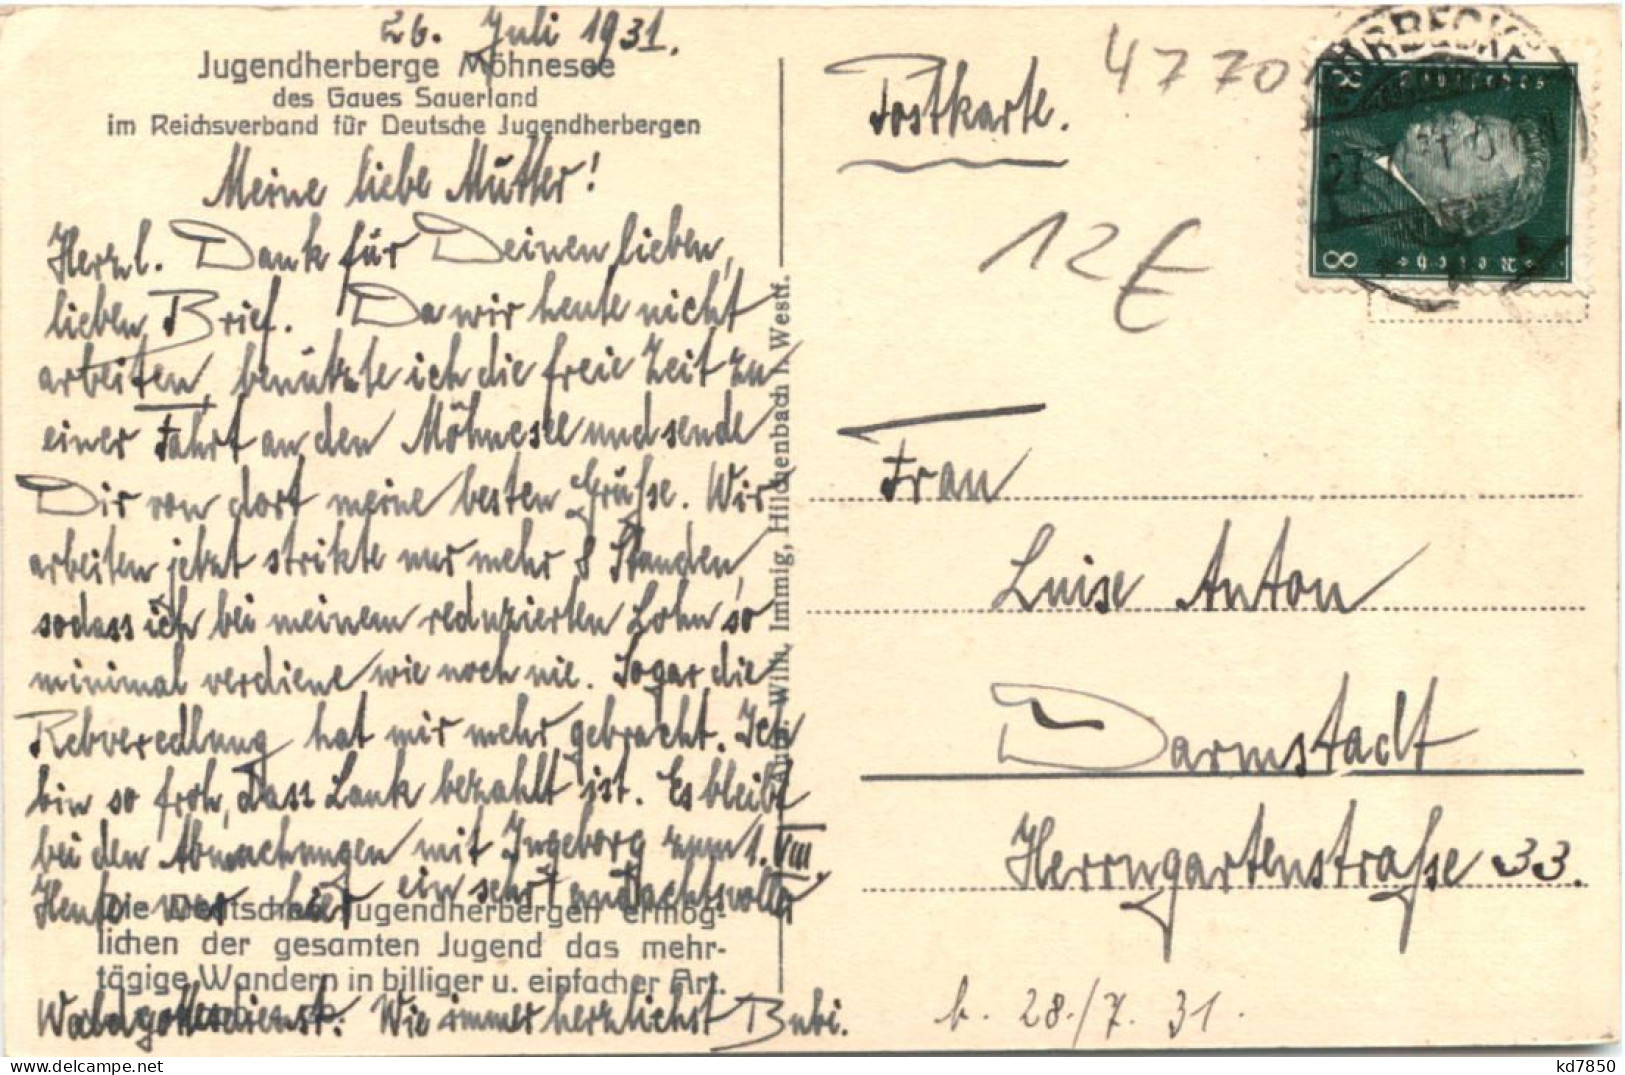 26. Juli 1931.
Jugendherberge Möhnesee
des Gaues Sauerland
im Reichsverband für Deutsche Jugendherbergen
Meine liebe Mutter!
Herzl. Dank für Deinen lieben,
lieben Brief. Da wir heute nicht
arbeiten, benützte ich die freie Zeit zu
einer Fahrt an den Möhnesee und sende
Dir von dort meine besten Grüsse. Wir
arbeiten jetzt strikte nur mehr 8 Stunden,
sodass ich bei meinem reduzierten Lohn so
minimal verdiene wie noch nie. Sogar die
Rebveredlung hat mir mehr gebracht. Ich
bin so froh, dass Lauk bezahlt ist. Es bleibt
bei den Abmachungen mit Ingeborg zum 1. VIII.
Heute war hier ein sehr andachtsvoller
Die Deutschen Jugendherbergen ermög-
lichen der gesamten Jugend das mehr-
tägige Wandern in billiger u. einfacher Art.
Waldgottesdienst. Wie immer herzlichst Bubi.
Wilh. Immig, Hilchenbach i. Westf.
Postkarte.
4770
12 €
8
8
27
Frau
Luise Anton
Darmstadt
Herrngartenstrasse 33.
b. 28./7. 31.
kd7850